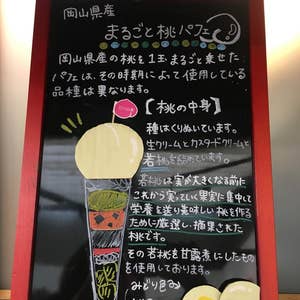 岡山県産
まるごと桃パフェ
岡山県産の桃を1玉まるごと乗せた
パフェは、その時期によって使用している
品種は異なります。
【桃の中身】
種はくりぬいています。
生クリームとカスタードクリームと
若桃を詰めています。
若桃は実が大きくなる前に
これから実っていく果実に集中して
栄養を送り美味しい桃を作る
ために厳選し摘果された
桃です。
その若桃を甘露煮にしたもの
を使用しております。
みどり色の